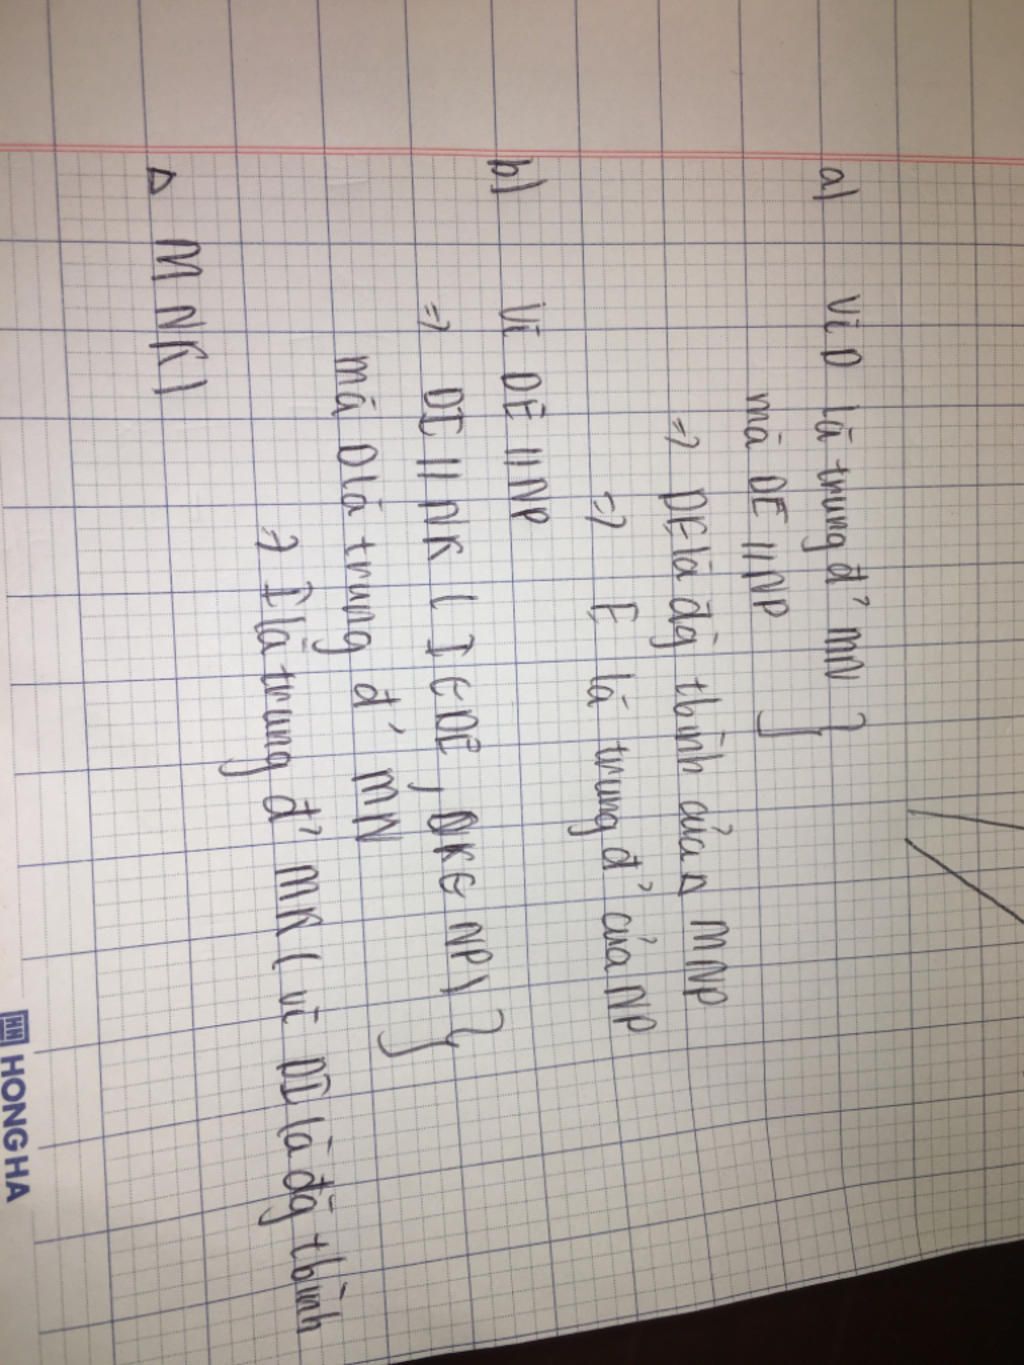 a) Vì D là trung đ' MN }
mà DE // NP }
=> DE là đg tbình của Δ MNP
=> E là trung đ' của NP
b) Vì DE // NP
=> DI // NK ( I ∈ DE, NK ∈ NP) }
mà D là trung đ' MN }
=> I là trung đ' MK ( vì DI là đg tbình
Δ MNK)
HH HONG HA